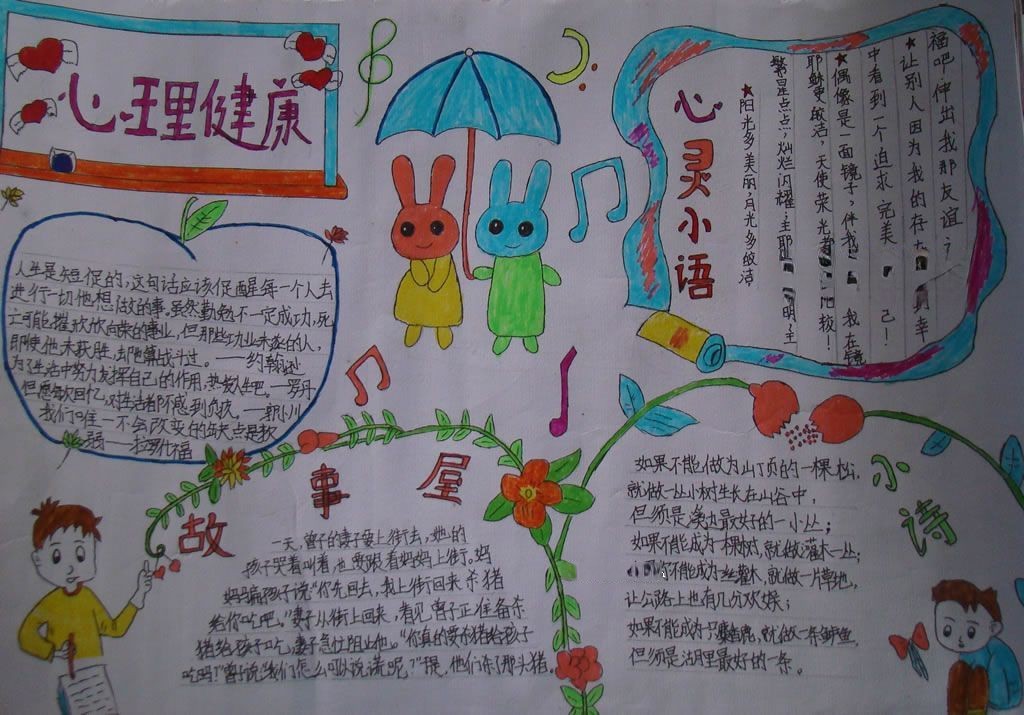 心理健康
人生是短促的，这句话应该促醒每一个人去
进行一切他想做的事。虽然勤勉不一定成功，死
亡可能摧折欣欣向荣的事业，但那些功业未遂的人，
即使他未获胜，去阴算战斗过。——约翰逊
为了生活中努力发挥自己的作用，热爱人生吧。——罗丹
但愿每次回忆，对生活都不感到负疚。——郭小川
我们唯一不会改变的缺点是软
弱——拉罗什福
心灵小语
福吧，伸出我那友谊之
★让别人因为我的存 真幸
中看到一个追求完美 己！
★偶像是一面镜子，伴我 我在镜
耶稣更皎洁，天使荣光 拔！
繁星点点，灿烂闪耀；主耶 明；主
★阳光多美丽，月光多皎洁
故事屋
一天，曾子的妻子要上街去，她的
孩子哭着叫着也要跟着妈妈上街。妈
妈骗孩子说“你先回去，我上街回来杀猪
给你吃吧。”妻子从街上回来，看见曾子正准备杀
猪给孩子吃，妻子急忙阻止他。“你真的要杀猪给孩子
吃吗？”曾子说“我们怎么可以说谎呢？”于是，他们杀了那头猪。
小诗
如果不能做为山顶的一棵松，
就做一丛小树生长在山谷中，
但须是溪边最好的一小丛；
如果不能成为一棵树，就做灌木一丛；
不能成为丛灌木，就做一片草地，
让公路上也有几分欢娱；
如果不能成为只麝香鹿，就做一条鲈鱼，
但须是湖里最好的一条。